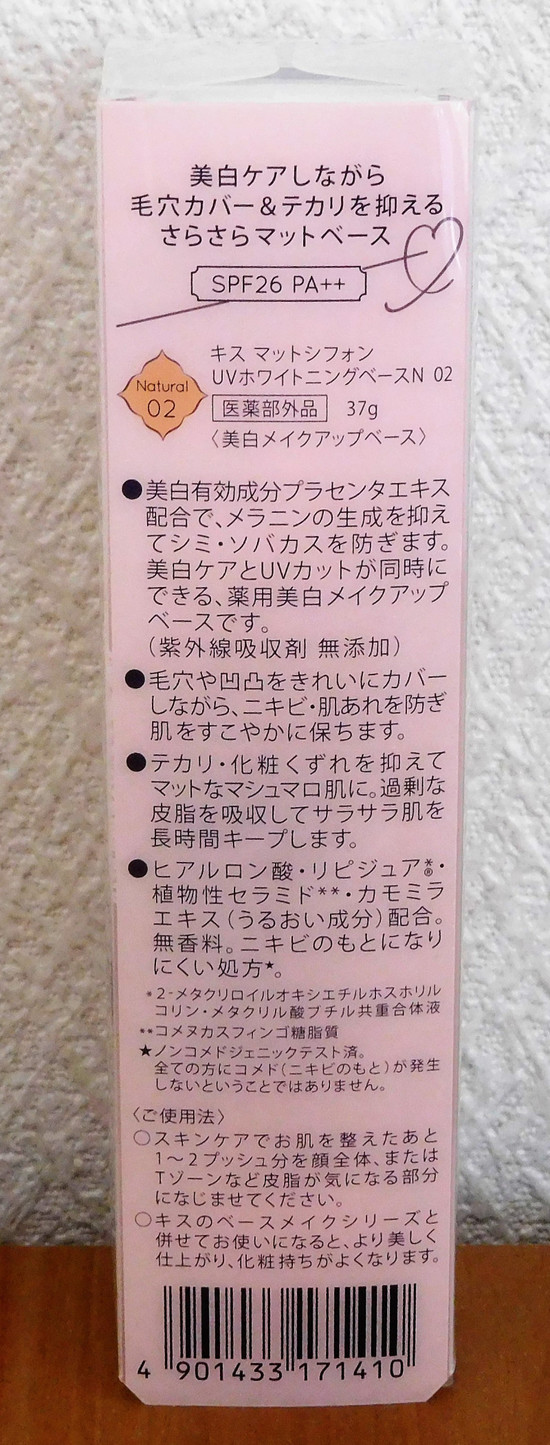 美白ケアしながら
毛穴カバー＆テカリを抑える
さらさらマットベース
SPF26 PA++
Natural
02
キス マットシフォン
UVホワイトニングベースN 02
医薬部外品 37g
〈美白メイクアップベース〉
●美白有効成分プラセンタエキス
配合で、メラニンの生成を抑え
てシミ・ソバカスを防ぎます。
美白ケアとUVカットが同時に
できる、薬用美白メイクアップ
ベースです。
（紫外線吸収剤 無添加）
●毛穴や凹凸をきれいにカバー
しながら、ニキビ・肌あれを防ぎ
肌をすこやかに保ちます。
●テカリ・化粧くずれを抑えて
マットなマシュマロ肌に。過剰な
皮脂を吸収してサラサラ肌を
長時間キープします。
●ヒアルロン酸・リピジュア®*・
植物性セラミド**・カモミラ
エキス（うるおい成分）配合。
無香料。ニキビのもとになり
にくい処方★。
*2-メタクリロイルオキシエチルホスホリル
コリン・メタクリル酸ブチル共重合体液
**コメヌカスフィンゴ糖脂質
★ノンコメドジェニックテスト済。
全ての方にコメド（ニキビのもと）が発生
しないということではありません。
〈ご使用法〉
○スキンケアでお肌を整えたあと
1～2プッシュ分を顔全体、または
Tゾーンなど皮脂が気になる部分
になじませてください。
○キスのベースメイクシリーズと
併せてお使いになると、より美しく
仕上がり、化粧持ちがよくなります。
4 901433 171410